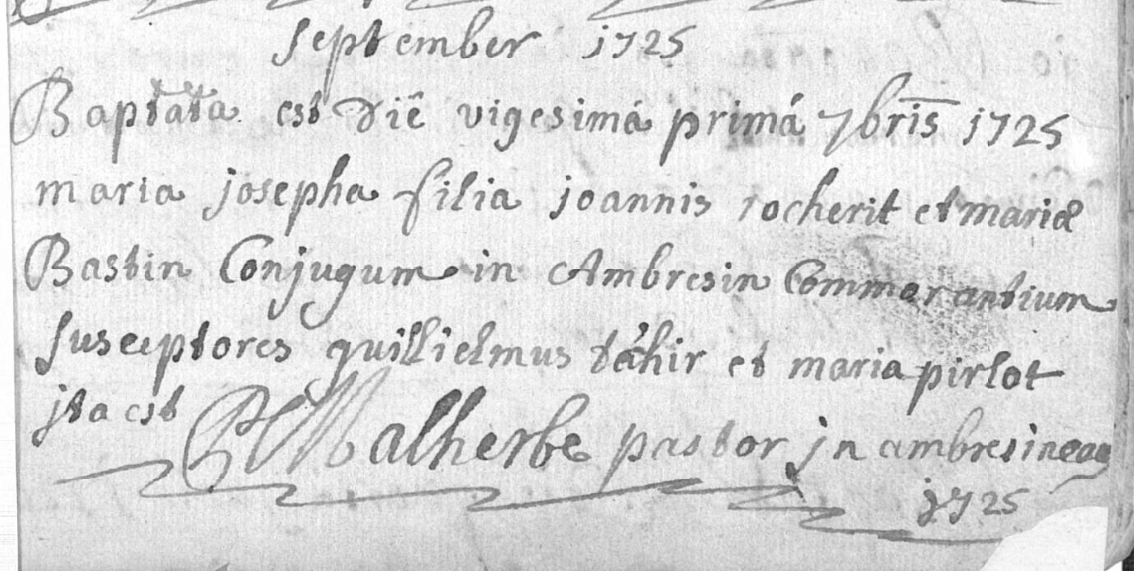 september 1725
Baptata est diê vigesimâ primâ 7bris 1725
maria josepha filia joannis rocherit et mariæ
Bastin Conjugum in Ambresin Commorantium
susceptores guillielmus tâhir et maria pirlot
jta est Malherbe pastor jn ambresineau
1725